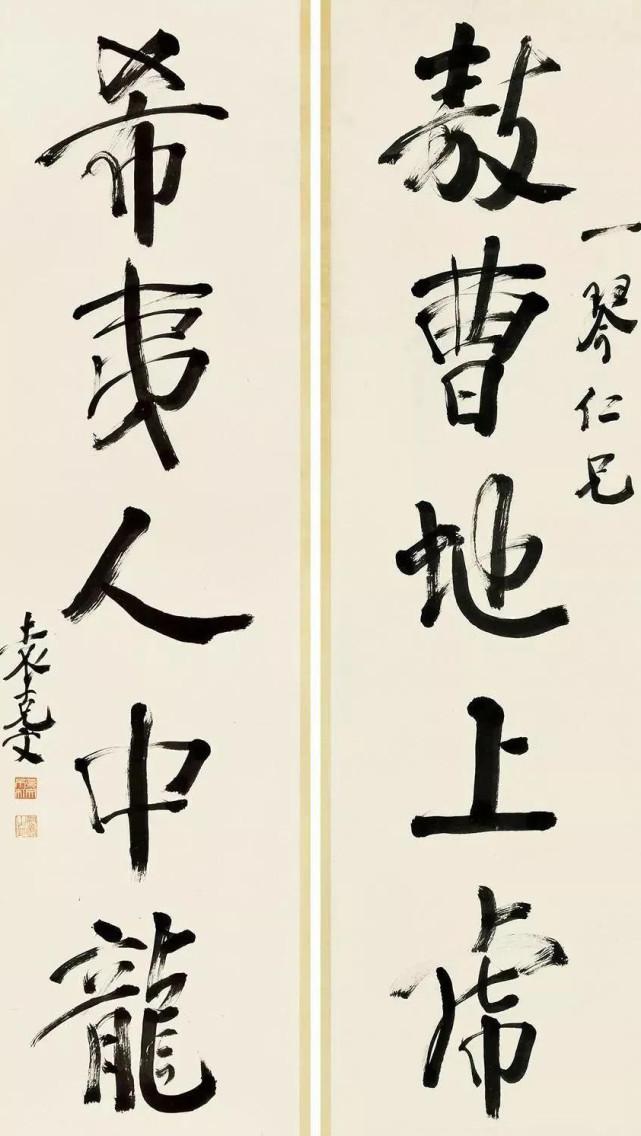 一琴仁兄
敖曹地上虎
希夷人中龍
袁克文